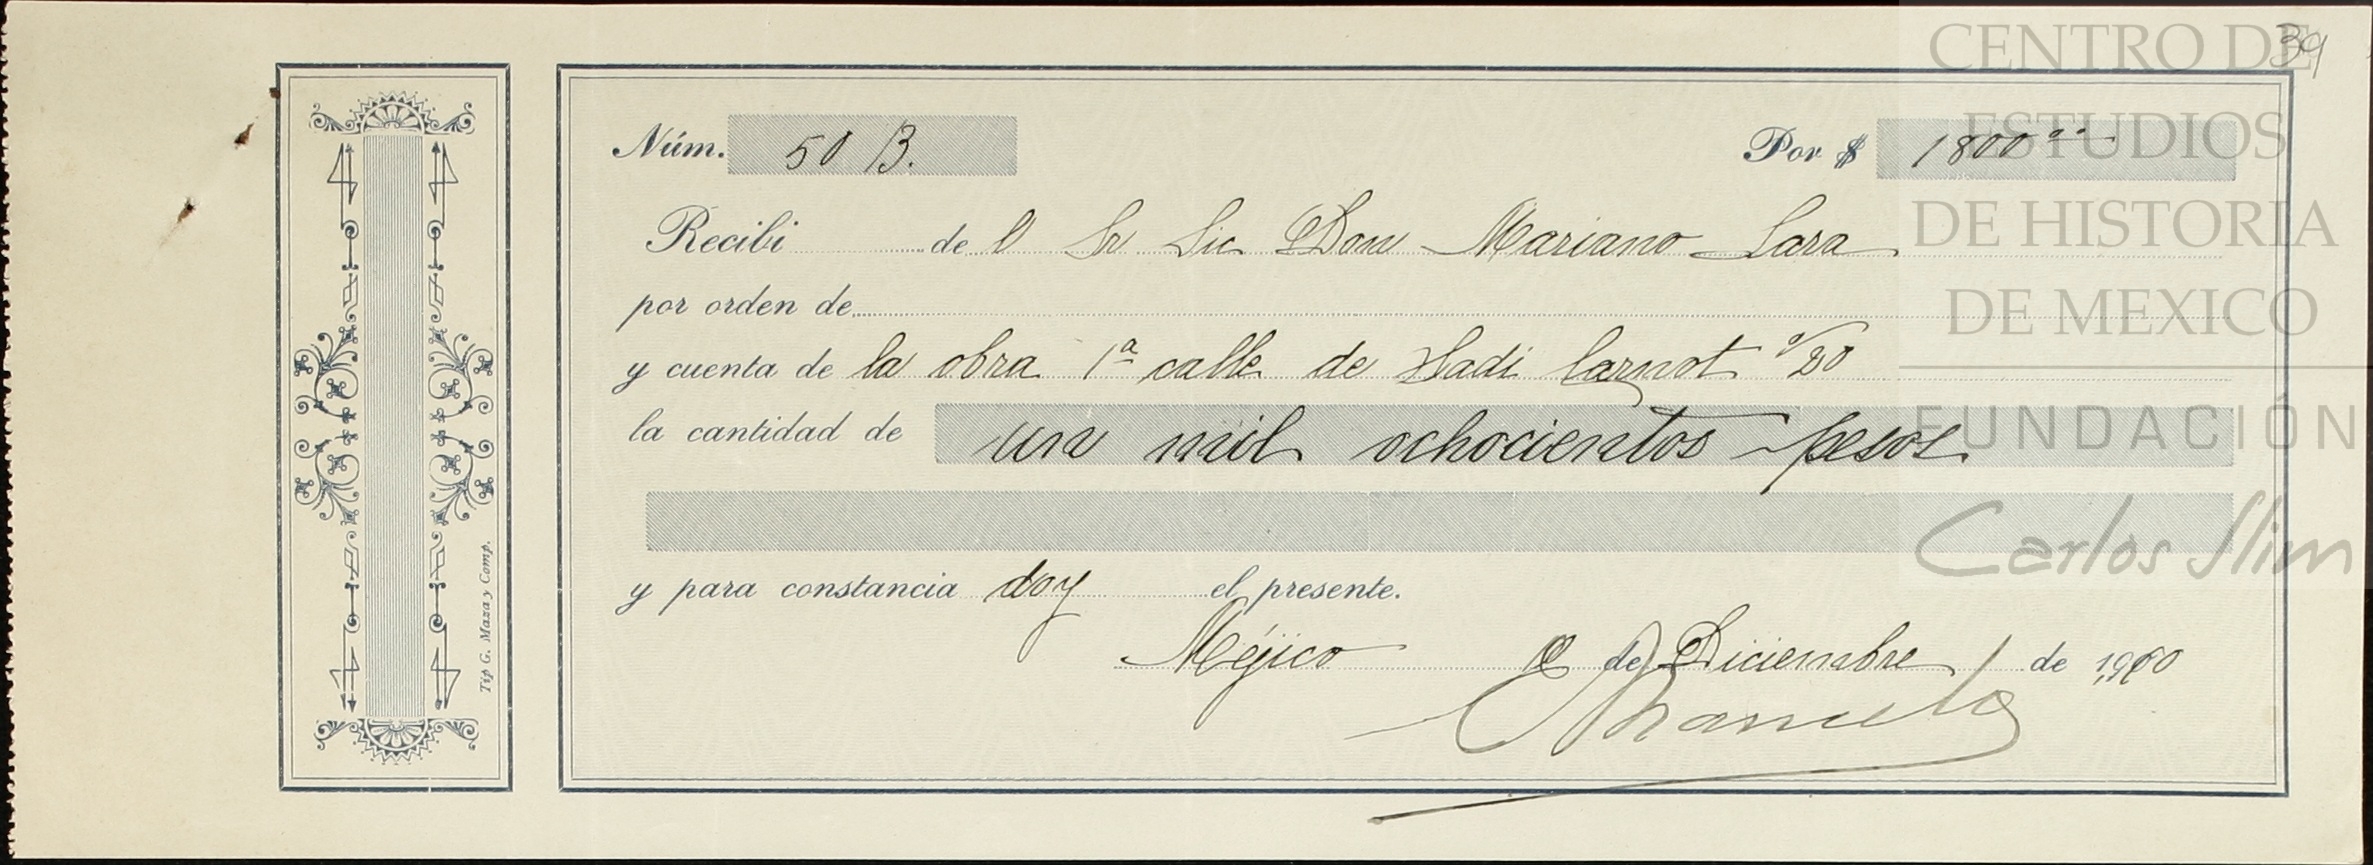 CENTRO DE
ESTUDIOS
DE HISTORIA
DE MEXICO
FUNDACIÓN
Carlos Slim
39
Núm. 50 B. Por $ 1800 oo
Recibi del Sr Lic Don Mariano Lara
por orden de
y cuenta de la obra 1ª calle de Sadi Carnot
la cantidad de un mil ochocientos pesos
y para constancia doy el presente.
Méjico de Diciembre de 1900
Tip G. Maza y Comp.